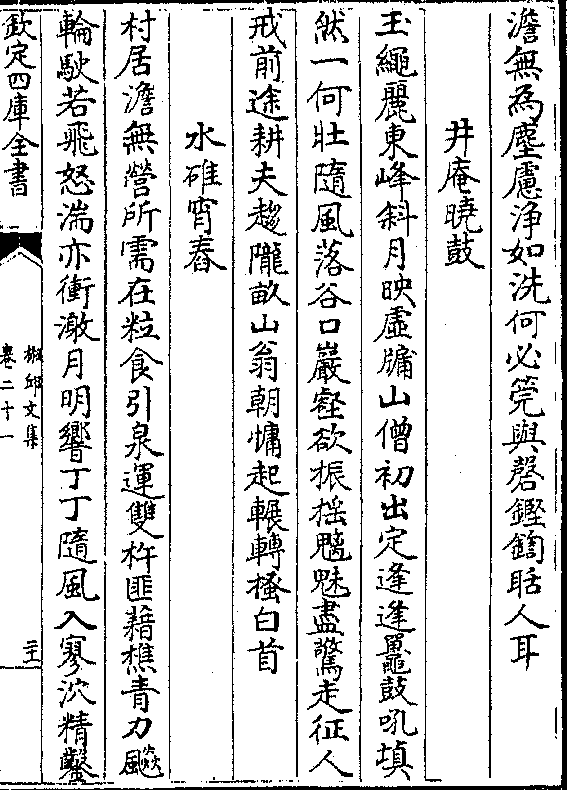 澹無為塵慮淨如洗何必筦與磬鏗鍧聒人耳
井庵曉鼓
玉繩麗東峰斜月映虛牗山僧初出定逢逢鼉鼓吼填
然一何壯隨風落谷口巖壑欲振揺魑魅盡驚走征人
戒前途耕夫趍隴畝山翁朝慵起輾轉搔白首
水碓宵舂
村居澹無營所需在粒食引泉運雙杵匪藉樵青力飈
輪駛若飛怒湍亦衝激月明響丁丁隨風入寥泬精鑿
欽定四庫全書
椒邱文集
卷二十一